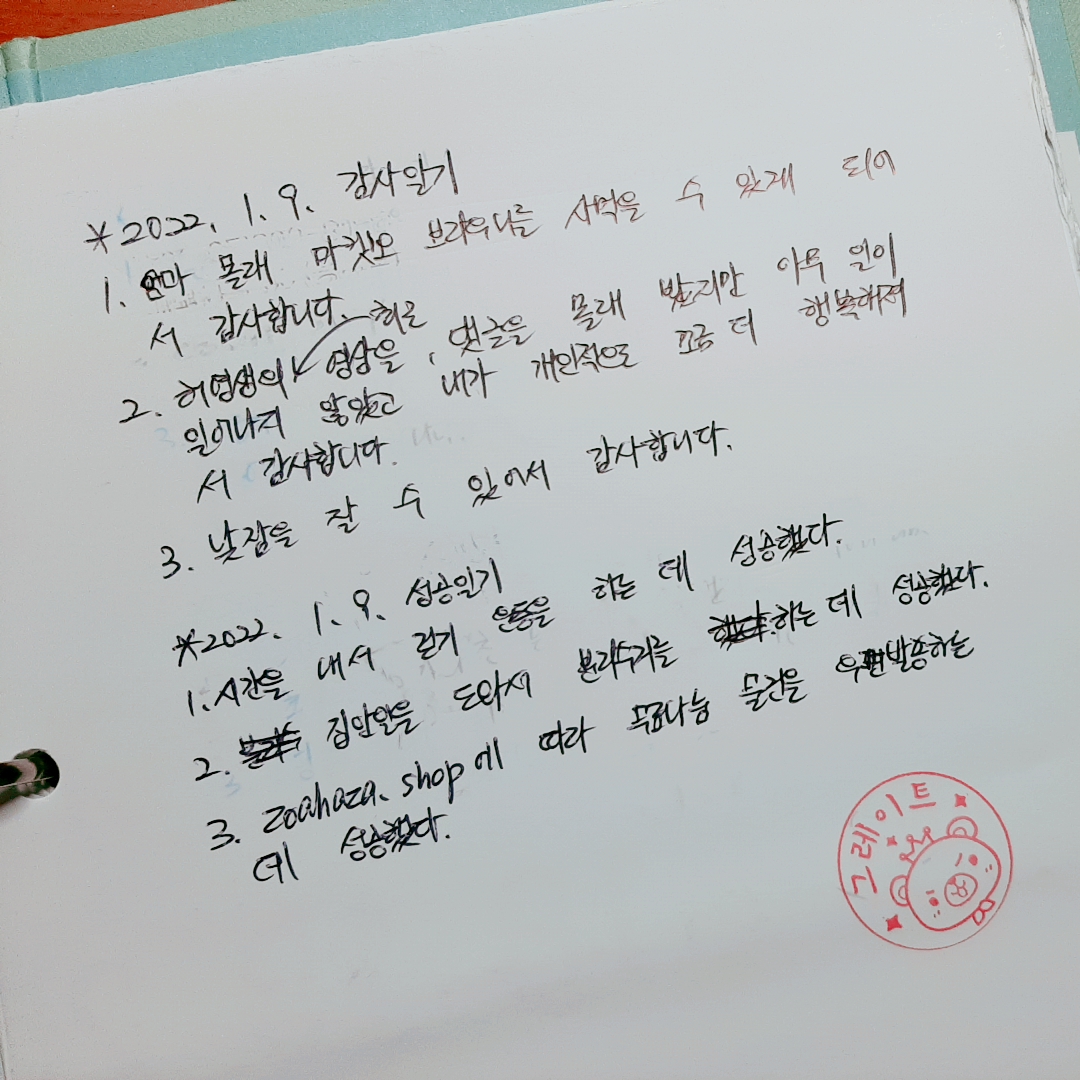 *2022. 1. 9. 감사일기
1. 엄마 몰래 마켓오 브라우니를 사먹을 수 있게 되어
서 감사합니다.
2. 허영생의 최근 영상을, 댓글을 몰래 봤지만 아무 일이
일어나지 않았고 내가 개인적으로 조금 더 행복해져
서 감사합니다.
3. 낮잠을 잘 수 있어서 감사합니다.
*2022. 1. 9. 성공일기
1. 시간을 내서 걷기 운동을 하는 데 성공했다.
2. 집안일을 도와서 분리수거를 하는 데 성공했다.
3. zoahaza.shop에 따라 무료나눔 물건을 우편발송하는
데 성공했다.
그레이트